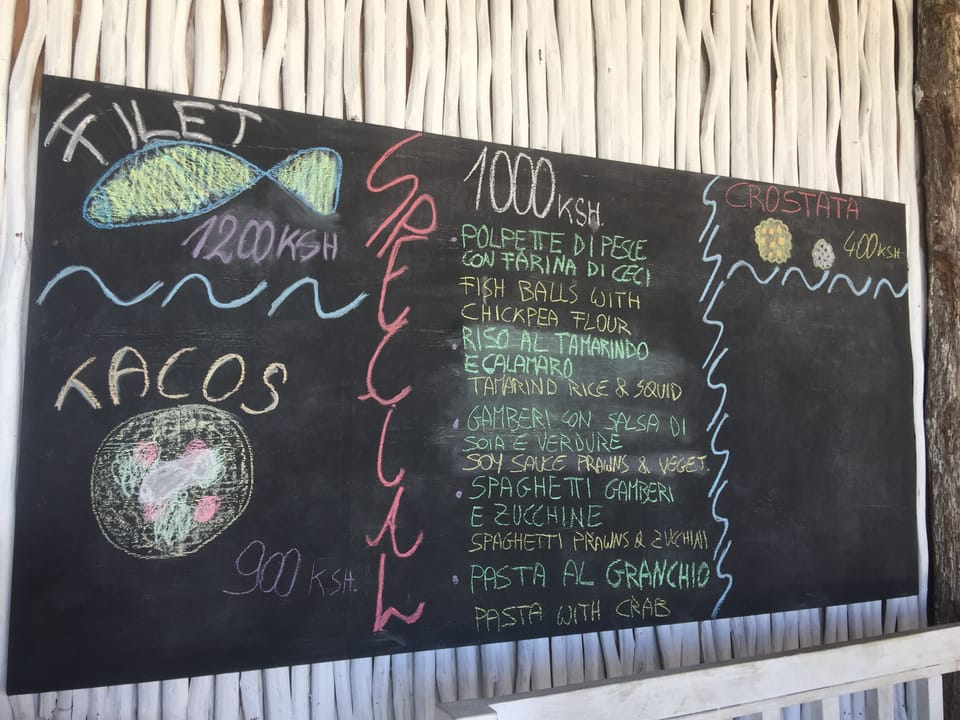 FILET
1200 KSH
TACOS
900 KSH.
SPECIAL
1000 KSH.
• POLPETTE DI PESCE
CON FARINA DI CECI
FISH BALLS WITH
CHICKPEA FLOUR
• RISO AL TAMARINDO
E CALAMARO
TAMARIND RICE & SQUID
• GAMBERI CON SALSA DI
SOIA E VERDURE
SOY SAUCE PRAWNS & VEGET.
• SPAGHETTI GAMBERI
E ZUCCHINE
SPAGHETTI PRAWNS & ZUCHINI
• PASTA AL GRANCHIO
PASTA WITH CRAB
CROSTATA
400 KSH